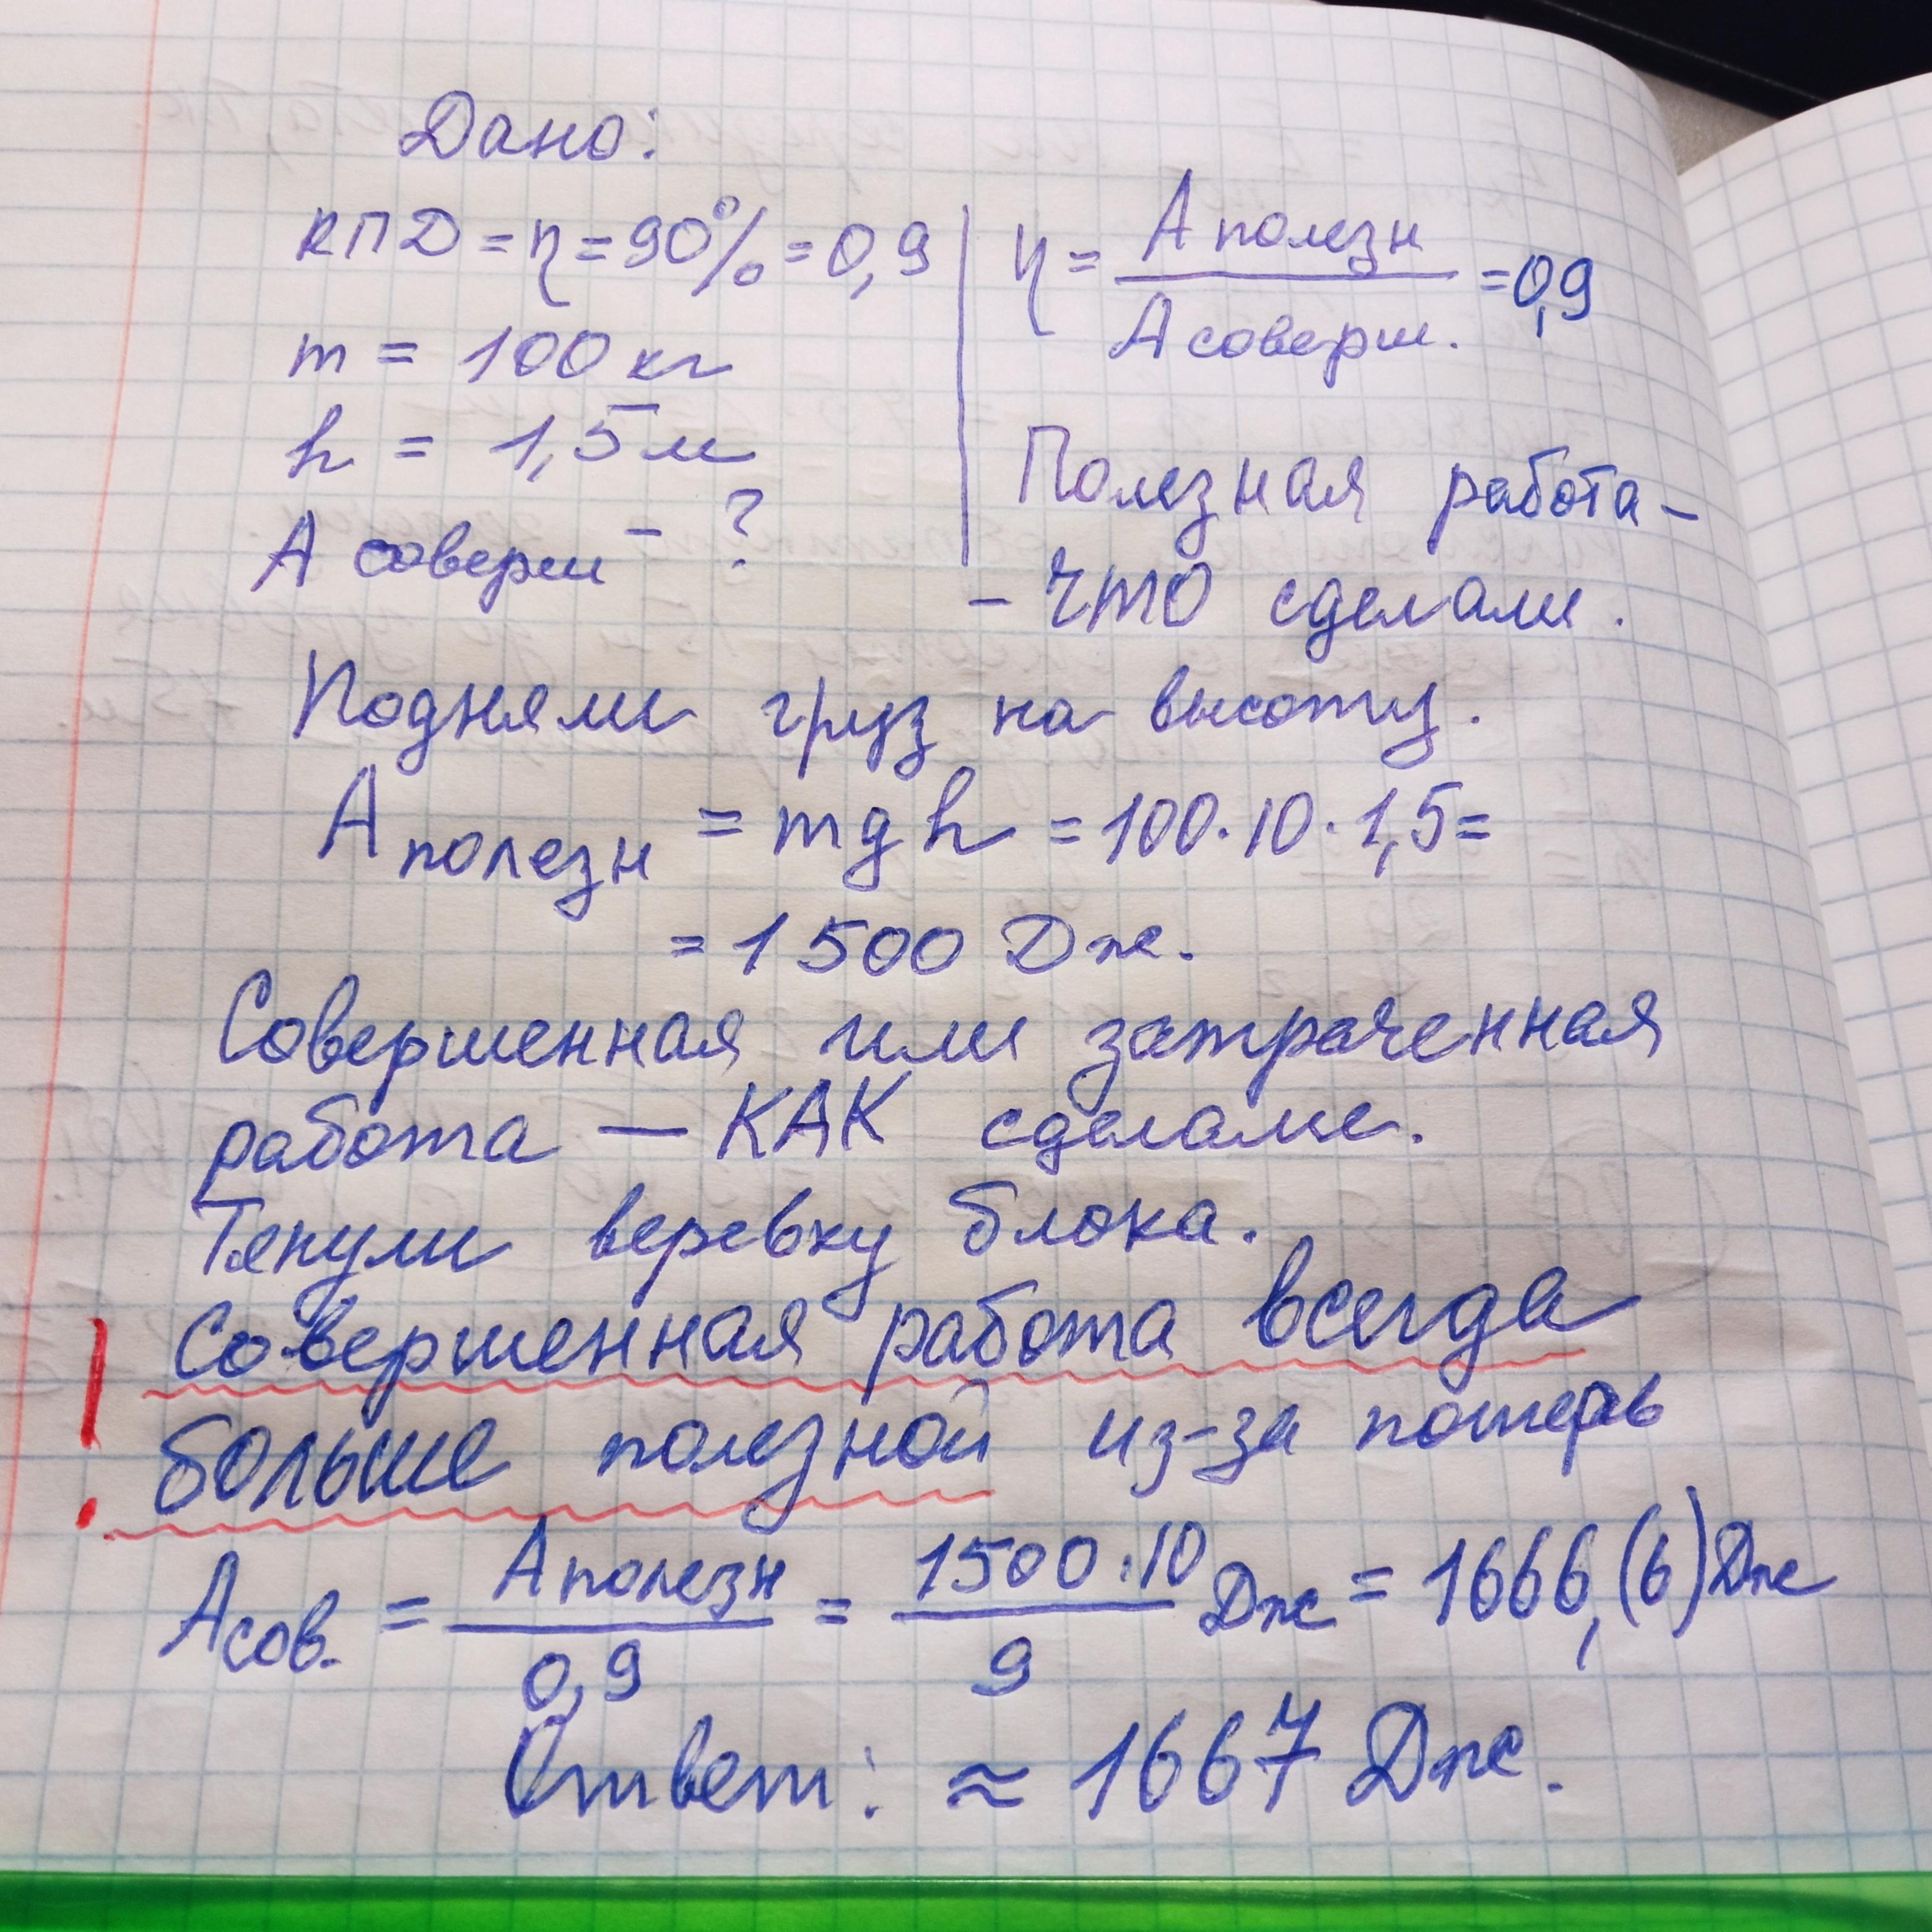 Дано:
КПД = η = 90% = 0,9
m = 100 кг
h = 1,5 м
A соверш - ?
η = A полезн / A соверш. = 0,9
Полезная работа -
- ЧТО сделали.
Подняли груз на высоту.
A полезн = mgh = 100·10·1,5 =
= 1500 Дж.
Совершенная или затраченная
работа — КАК сделали.
Тянули веревку блока.
Совершенная работа всегда
больше полезной из-за потерь
!
A сов. = A полезн / 0,9 = 1500·10 / 9 Дж = 1666,(6) Дж
Ответ: ≈ 1667 Дж.